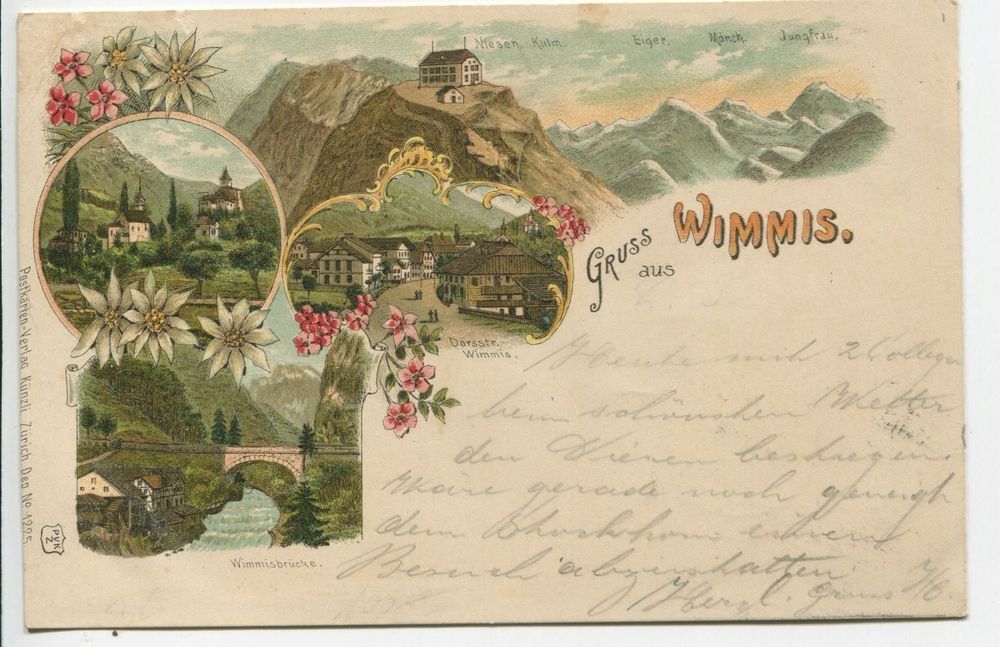 1
Niesen Kulm.
Eiger. Mönch. Jungfrau.
Gruss
aus
WIMMIS.
Dorsstr.
Wimmis.
Wimmisbrücke.
Postkarten-Verlag Künzli Zürich. Dep. No. 1225
PVKZ
Heute mit 2 Collegen
beim schönsten Wetter
den Niesen bestiegen.
Wäre gerade noch geneigt
dem
Besuch abzustatten
Herzl. Gruss